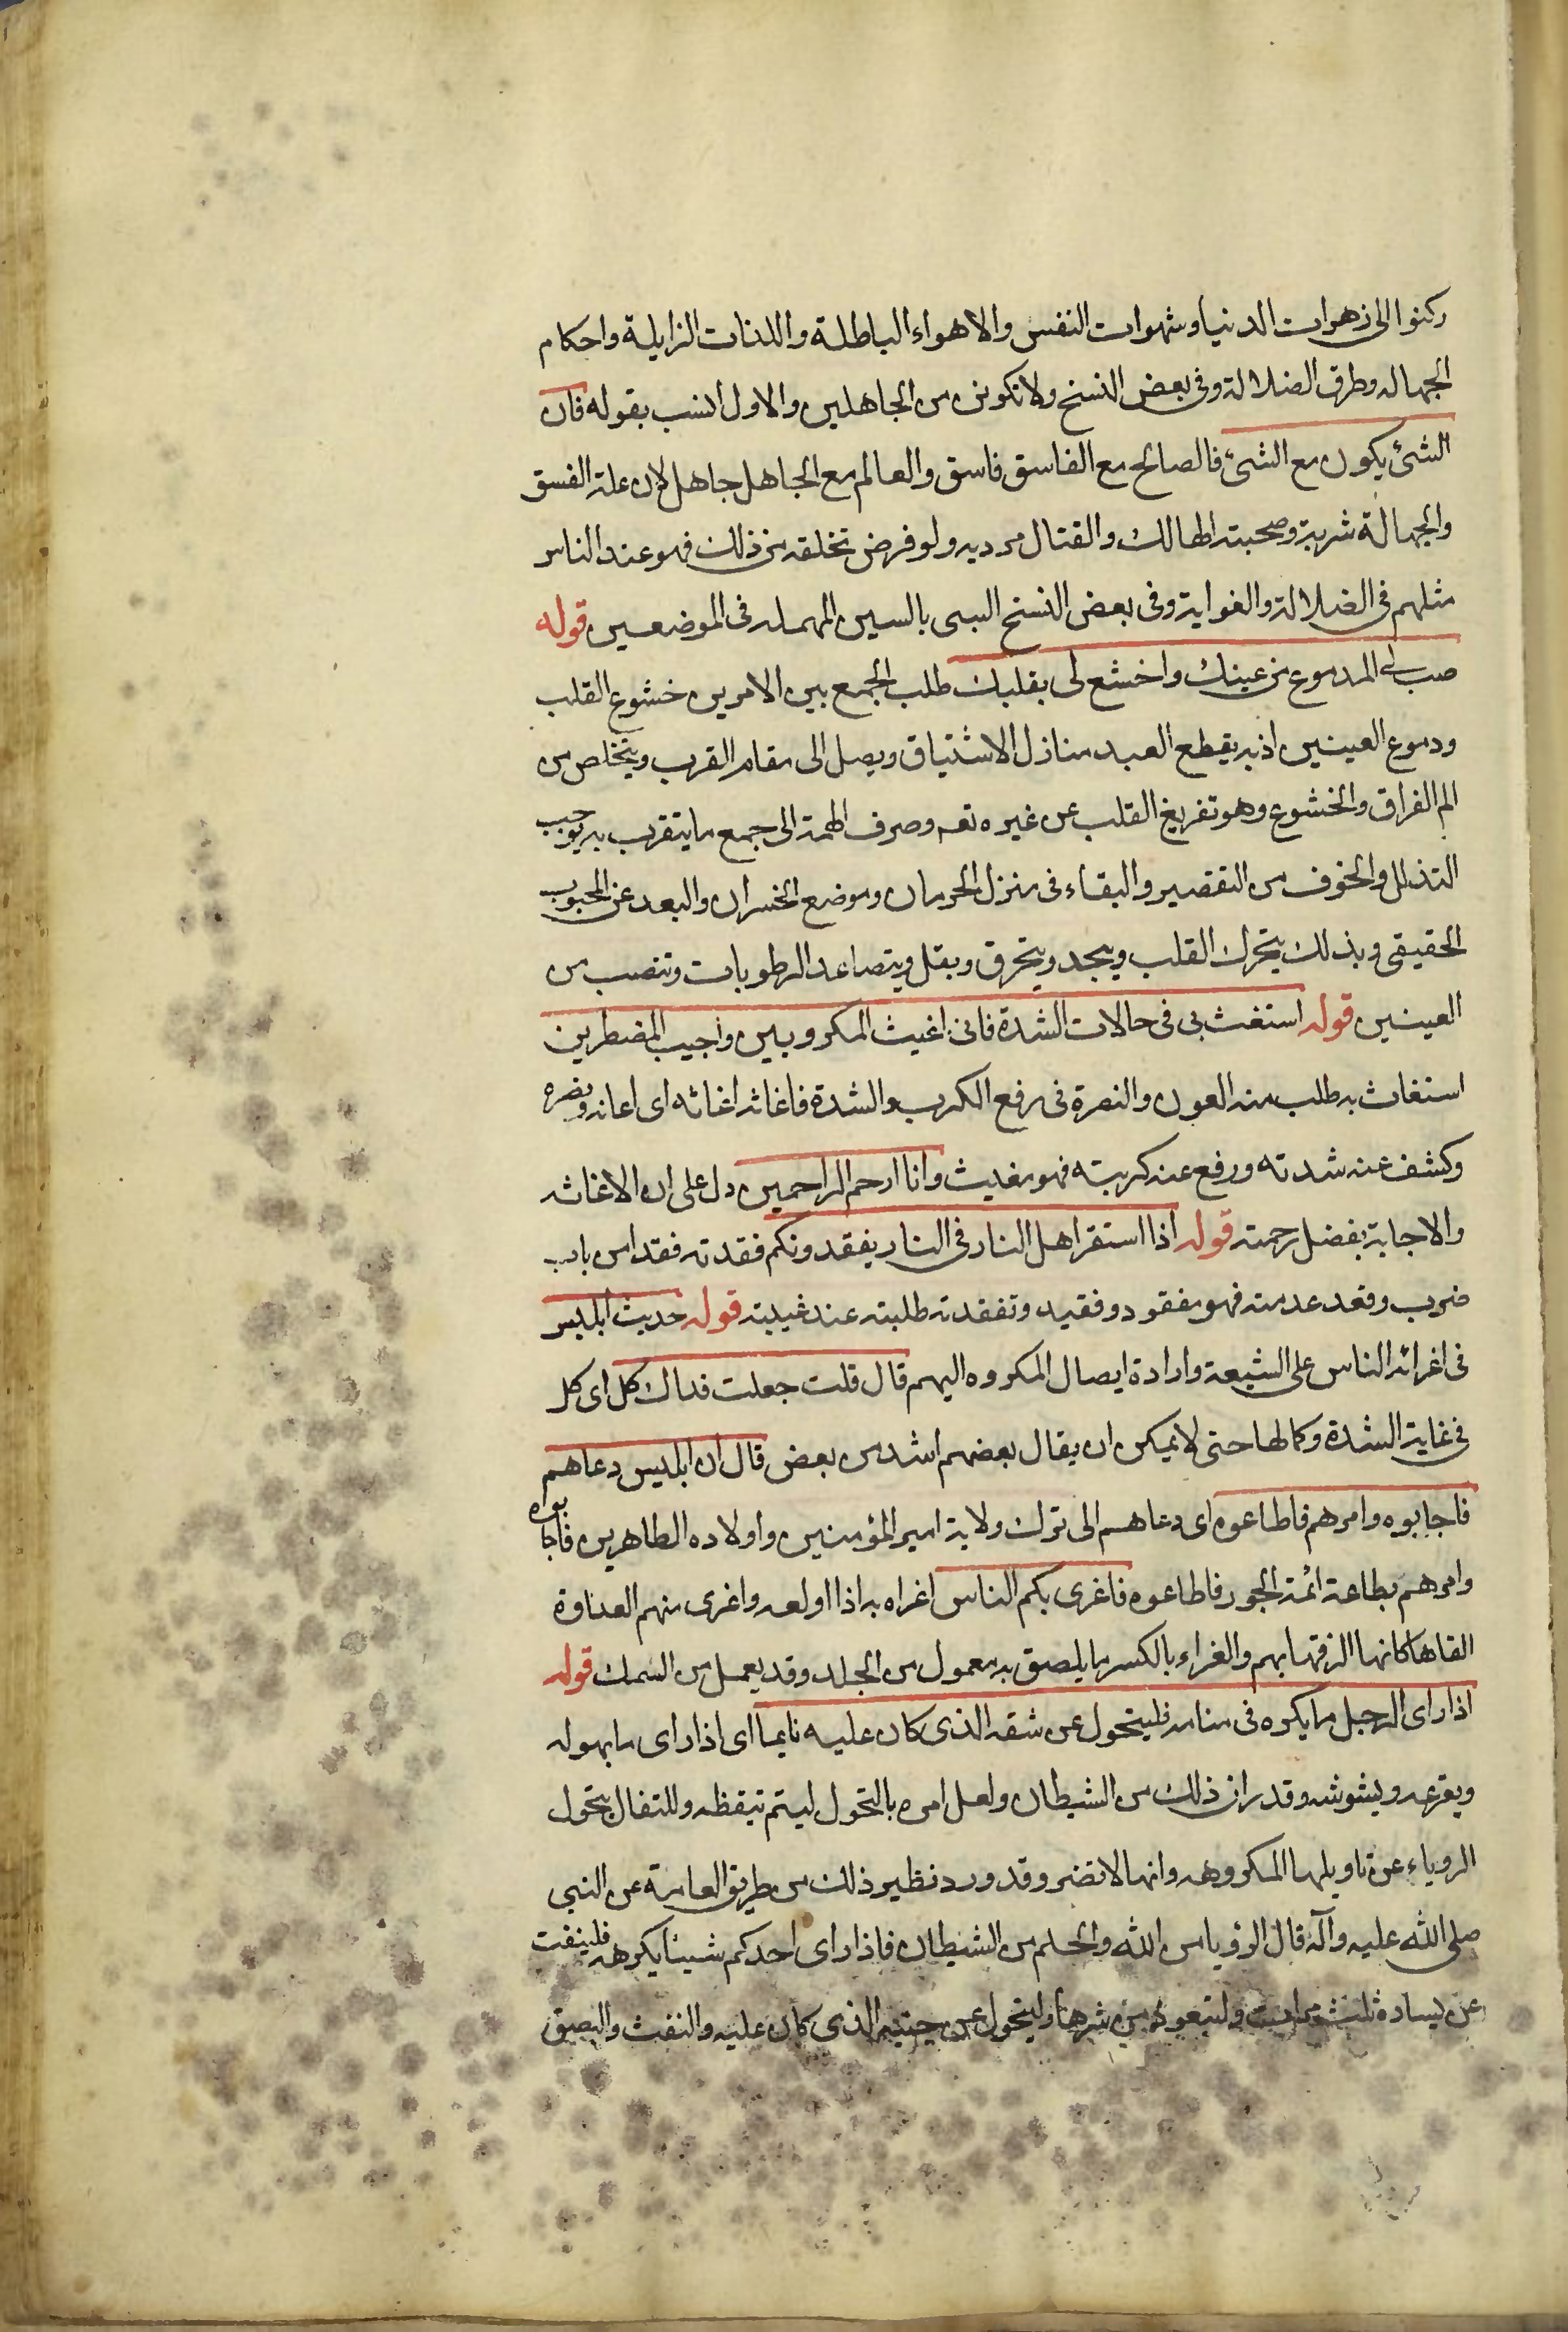 ركنوا الى زهرات الدنيا وشهوات النفس والاهواء الباطلة واللذات الزايلة واحكام
الجهاله وطرق الضلالة وفى بعض النسخ ولا تكونن من الجاهلين والاول انسب بقوله فان
الشئ يكون مع الشئ فالصالح مع الفاسق فاسق والعالم مع الجاهل جاهل لان علة الفسق
والجهالة شريته وصحبته الهالك والقتال مرديه ولو فرض تخلقه من ذلك فهو عند الناس
مثلهم فى الضلالة والغواية وفى بعض النسخ السى بالسين المهمله فى الموضعين قوله
صب لى الدموع من عينك واخشع لى بقلبك طلب الجمع بين الامرين خشوع القلب
ودموع العينين اذ به يقطع العبد منازل الاشتياق ويصل الى مقام القرب ويتخلص من
الم الفراق والخشوع وهو تفريغ القلب عن غيره تعه وصرف الهمة الى جمع ما يتقرب به يوجب
التذلل والخوف من التقصير والبقاء فى منزل الحرمان وموضع الخسران والبعد عن المحبوب
الحقيقى وبذلك يتحرك القلب ويجد ويتحرق ويقل ويتصاعد الرطوبات وتنصب من
العينين قوله استغث بى فى حالات الشدة فانى اغيث المكروبين واجيب المضطرين
استغاث به طلب منه العون والنصرة فى رفع الكرب والشدة فاغاثه اغاثه اى اعانه ونصره
وكشف عنه شدته ورفع عنه كربته فهو مغيث وانا ارحم الراحمين دل على ان الاغاثه
والاجابة بفضل رحمته قوله اذا استقر اهل النار فى النار يفقدونكم فقدته فقدا من باب
ضرب وفقد عدمته فهو مفقود وفقيد وتفقدته طلبته عند غيبته قوله حديث ابليس
فى اغرائه الناس على الشيعة وارادة ايصال المكروه اليهم قال قلت جعلت فداك كل اى كل
فى غاية الشدة وكمالها حتى لا يمكن ان يقال بعضهم اشد من بعض قال ان ابليس دعاهم
فاجابوه وامرهم فاطاعوه اى دعاهم الى ترك ولاية امير المؤمنين واولاده الطاهرين فاجابوه
وامرهم بطاعة ائمة الجور فاطاعوه فاغرى بكم الناس اغراه به اذا اولعه واغرى منهم العداوة
القاها كانها الزقها بهم والغراء بالكسر ما يلصق به معمول من الجلد وقد يعمل من السمك قوله
اذا راى الرجل ما يكره فى منامه فليتحول عن شقه الذى كان عليه نايما اى اذا راى ما يهوله
ويقرعه ويشوشه وقدر ان ذلك من الشيطان ولعل امره بالتحول ليتم تيقظه وللتفال بتحول
الروياء عن تاويلها المكروهه وانها لا تضر وقد ورد نظير ذلك من طريق العامة عن النبى
صلى الله عليه وآله قال الرؤيا من الله والحلم من الشيطان فاذا راى احدكم شيئا يكرهه فلينفث
عن يساره ثلث مرات وليتعوذ من شرها وليتحول عن جنبه الذى كان عليه والنفث والبصق